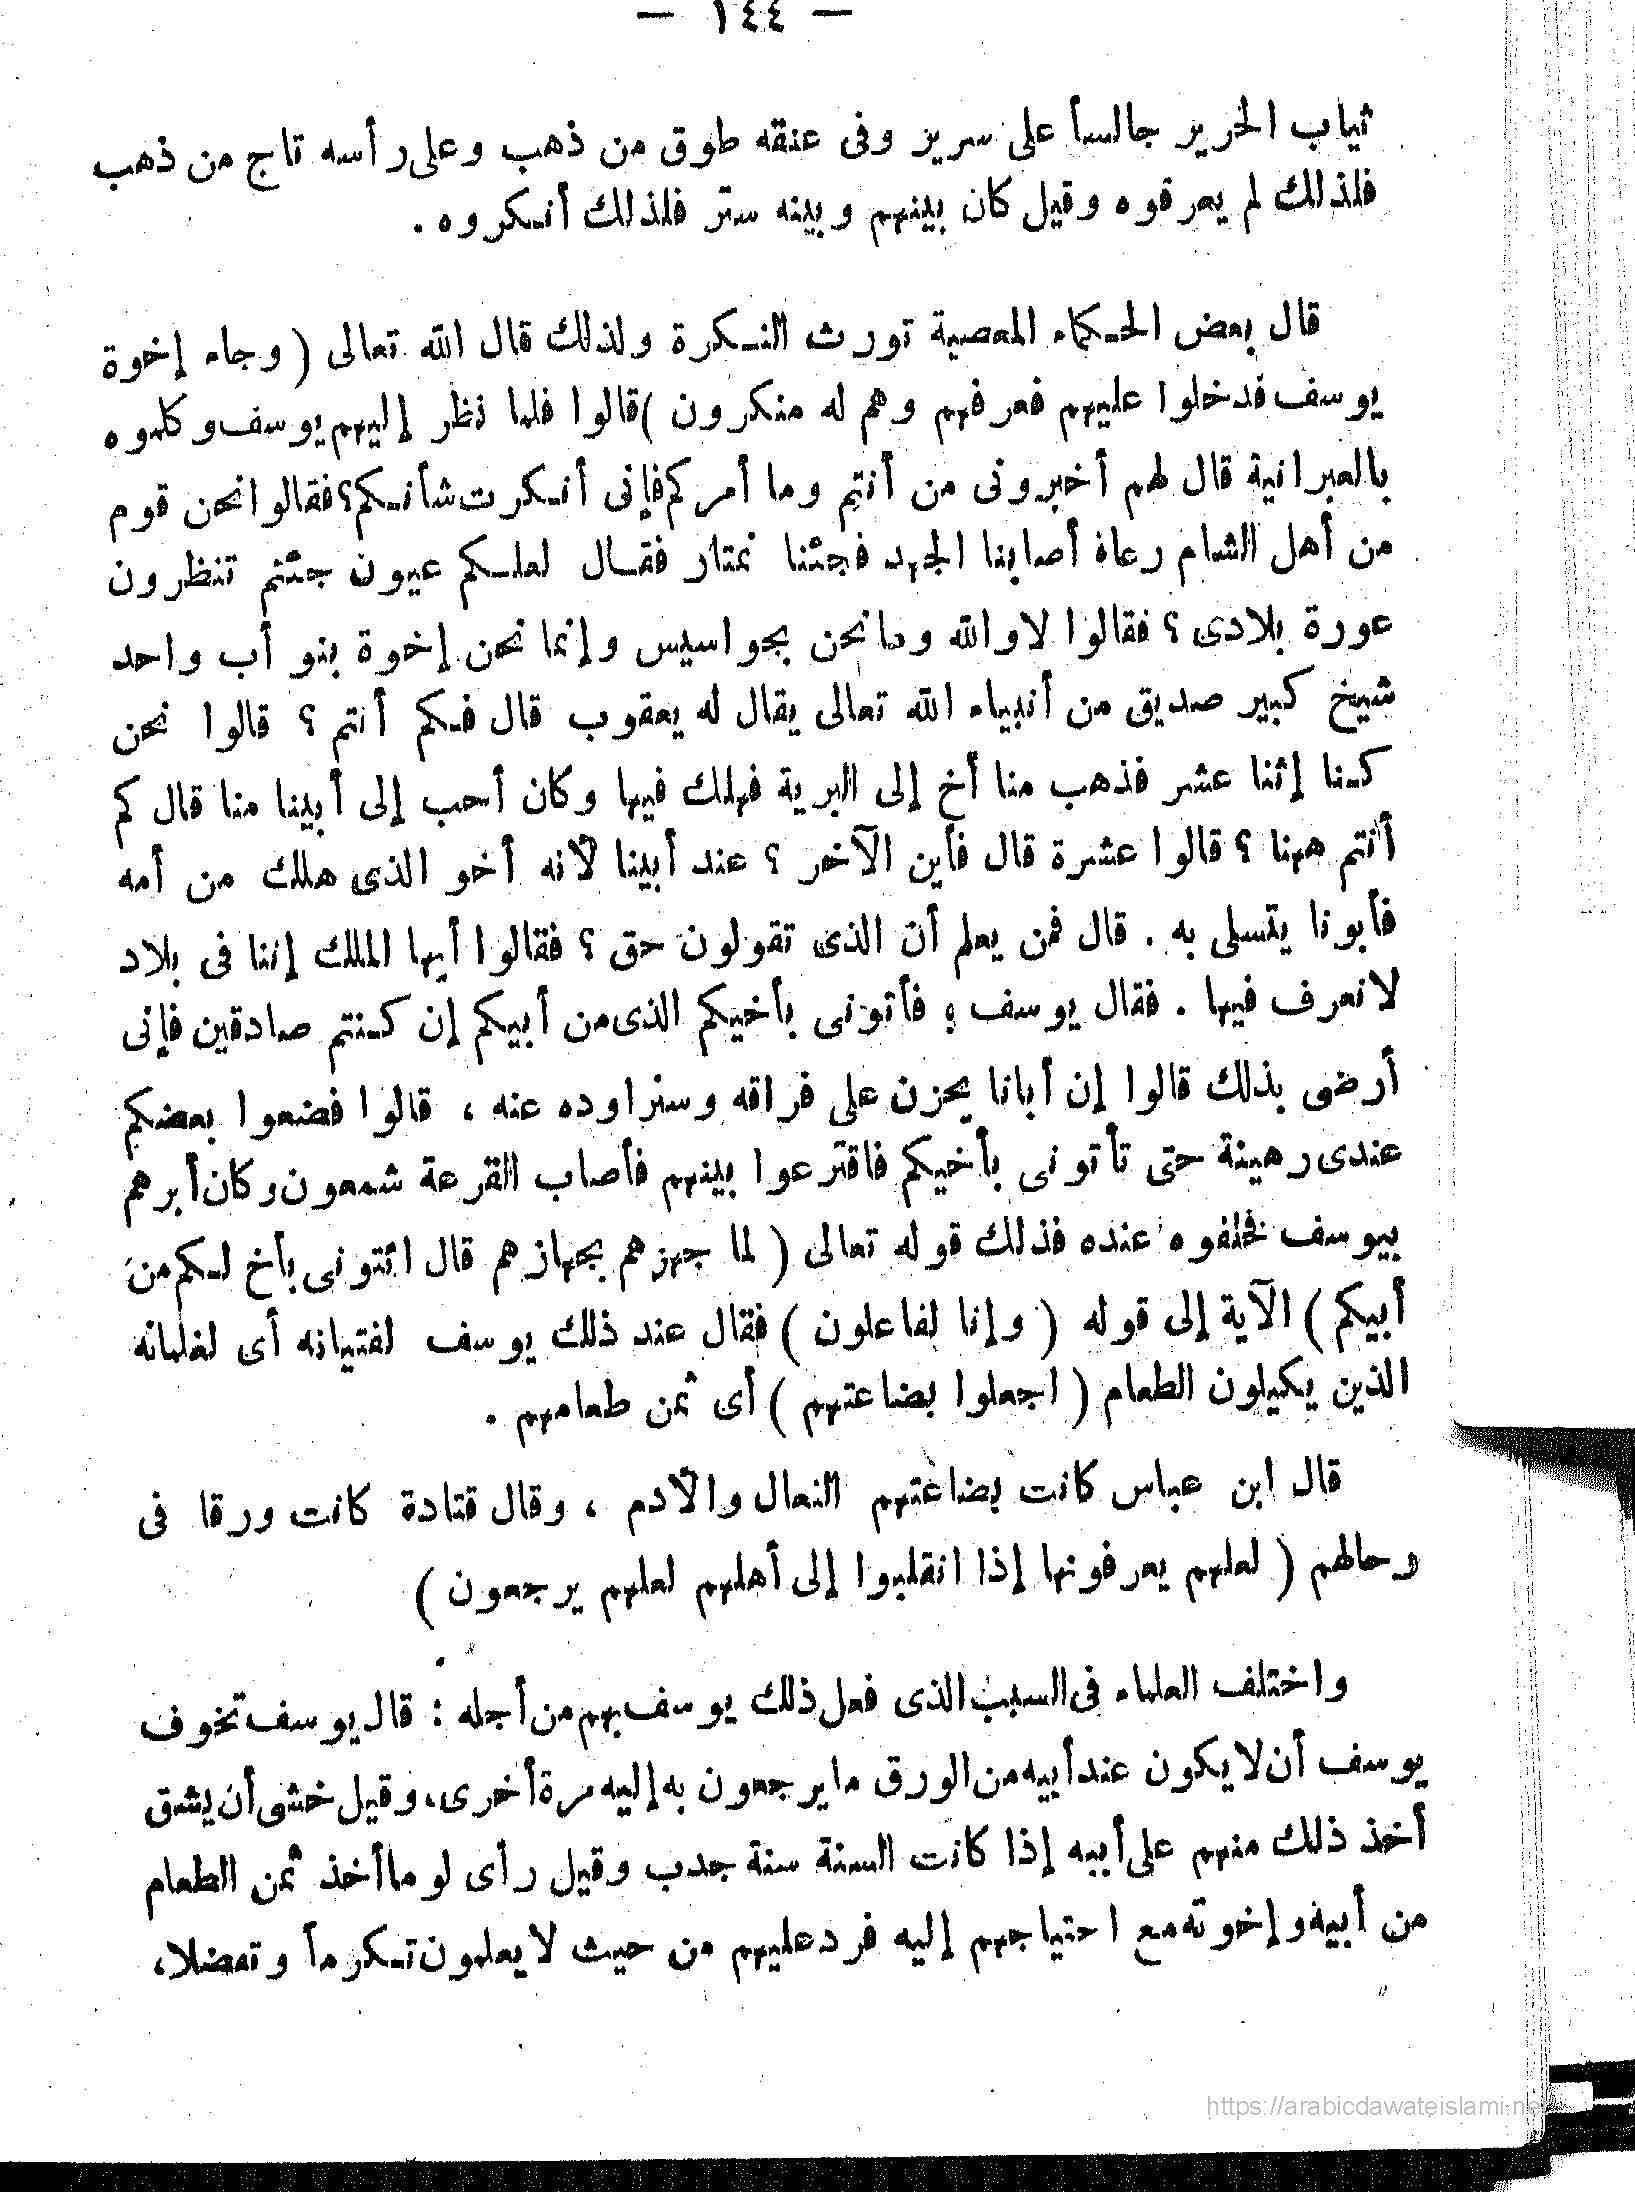 — ١٤٤ —
ثياب الحرير جالساً على سرير وفى عنقه طوق من ذهب وعلى رأسه تاج من ذهب
فلذلك لم يعرفوه وقيل كان بينهم وبينه ستر فلذلك أنكروه .
قال بعض الحكماء المعصية تورث النكرة ولذلك قال الله تعالى ( وجاء إخوة
يوسف فدخلوا عليهم فعرفهم وهم له منكرون ) قالوا فلما نظر إليهم يوسف وكلموه
بالعبرانية قال لهم أخبرونى من أنتم وما أمركم فإنى أنكرت شأنكم؟ فقالوا نحن قوم
من أهل الشام رعاة أصابنا الجهد فجئنا نمتار فقال لعلكم عيون جئتم تنظرون
عورة بلادى ؟ فقالوا لا والله وما نحن بجواسيس وإنما نحن إخوة بنو أب واحد
شيخ كبير صديق من أنبياء الله تعالى يقال له يعقوب قال فكم أنتم ؟ قالوا نحن
كنا إثنا عشر فذهب منا أخ إلى البرية فهلك فيها وكان أحب إلى أبينا منا قال كم
أنتم ههنا ؟ قالوا عشرة قال فأين الآخر ؟ عند أبينا لأنه أخو الذى هلك من أمه
فأبونا يتسلى به . قال فمن يعلم أن الذى تقولون حق ؟ فقالوا أيها الملك إننا فى بلاد
لا نعرف فيها . فقال يوسف ؛ فأتونى بأخيكم الذى من أبيكم إن كنتم صادقين فإنى
أرضى بذلك قالوا إن أبانا يحزن على فراقه وسنراوده عنه ، قالوا فضعوا بعضكم
عندى رهينة حتى تأتونى بأخيكم فاقترعوا بينهم فأصاب القرعة شمعون وكان أبرهم
بيوسف فخلفوه عنده فذلك قوله تعالى ( لما جهزهم بجهازهم قال ائتونى بأخ لكم من
أبيكم ) الآية إلى قوله ( وإنا لفاعلون ) فقال عند ذلك يوسف لفتيانه أى لغلمانه
الذين يكيلون الطعام ( اجعلوا بضاعتهم ) أى ثمن طعامهم .
قال ابن عباس كانت بضاعتهم النعال والأدم ، وقال قتادة كانت ورقا فى
رحالهم ( لعلهم يعرفونها إذا انقلبوا إلى أهلهم لعلهم يرجعون )
واختلف العلماء فى السبب الذى فعل ذلك يوسف بهم من أجله : قال يوسف تخوف
يوسف أن لا يكون عند أبيه من الورق ما يرجعون به إليه مرة أخرى، وقيل خشى أن يشق
أخذ ذلك منهم على أبيه إذا كانت السنة سنة جدب وقيل رأى لو ما أخذ ثمن الطعام
من أبيه وإخوته مع احتياجهم إليه فرد عليهم من حيث لا يعلمون تكرماً وتفضلا،
https://arabicdawateislami.net